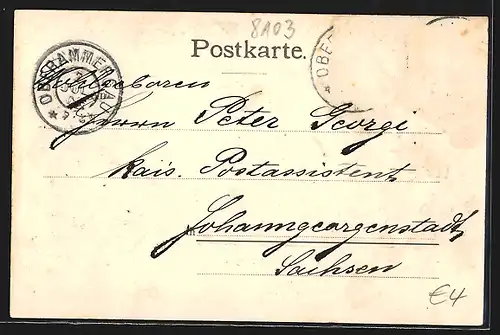 8103
Postkarte.
OBERAMMERGAU
OBE
Wohlgeboren
Herrn Peter Georgi
kais. Postassistent
Johanngeorgenstadt,
Sachsen
€4